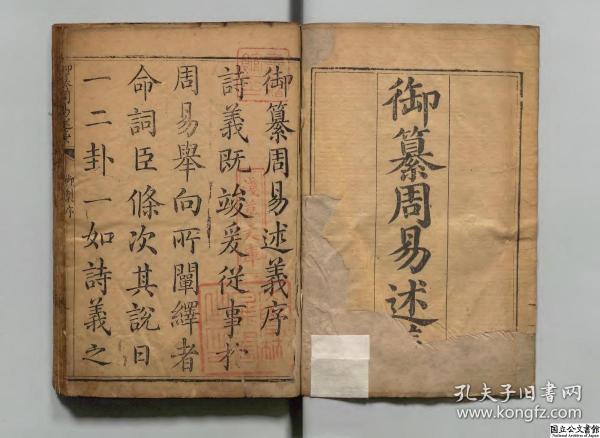 御纂周易述
御纂周易述義序
詩義既竣爰從事於
周易舉向所闡繹者
命詞臣條次其說日
一二卦一如詩義之
孔夫子旧书网
www.kongfz.com
国立公文書館
National Archives of Japan